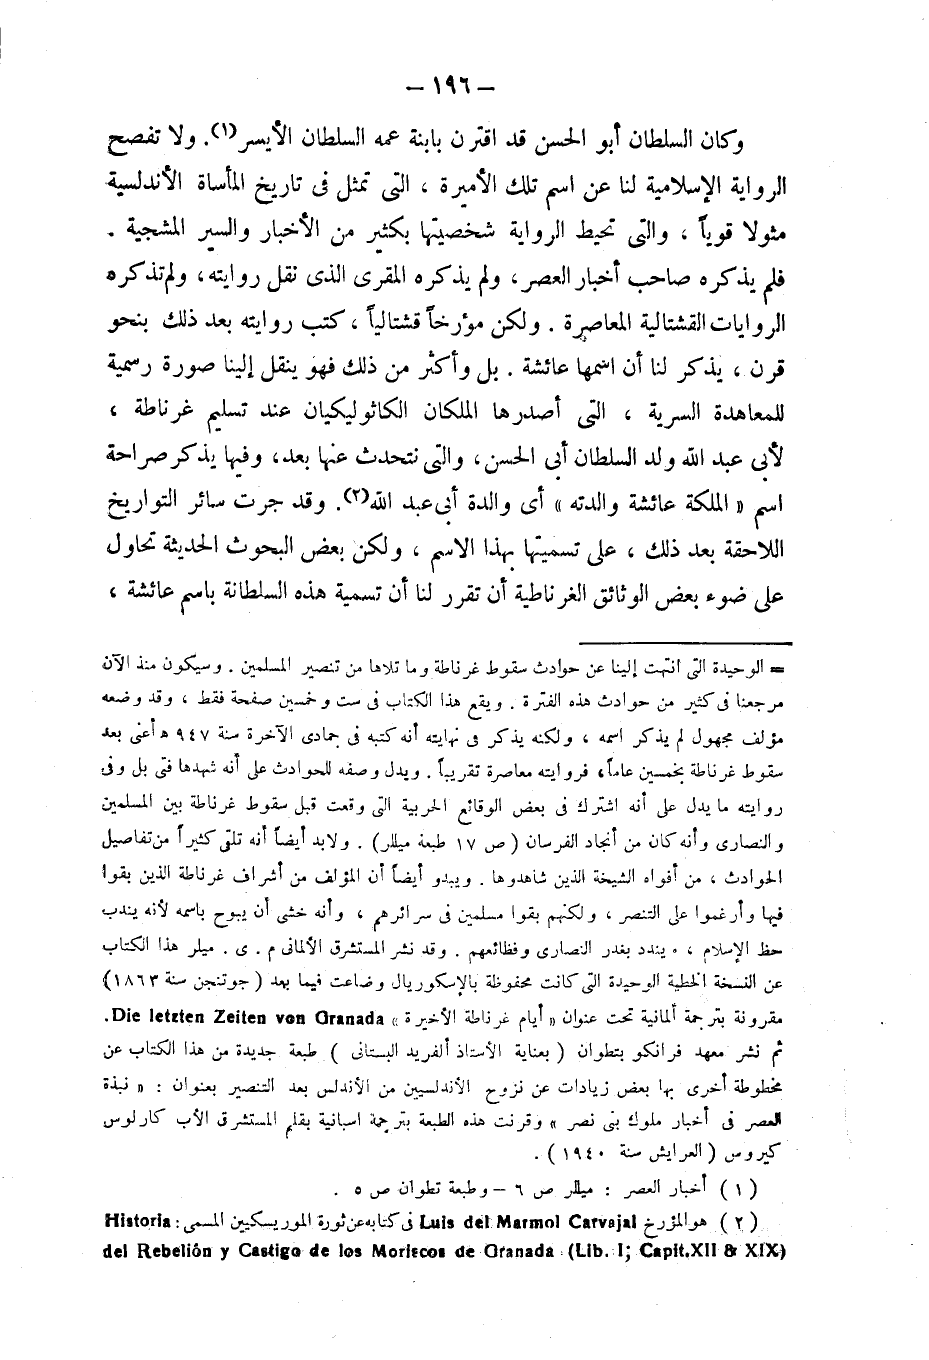 — ١٩٦ —
وكان السلطان أبو الحسن قد اقترن بابنة عمه السلطان الأيسر(١). ولا تفصح
الرواية الإسلامية لنا عن اسم تلك الأميرة ، التى تمثل فى تاريخ المأساة الأندلسية
مثولا قوياً ، والتى تحيط الرواية شخصيتها بكثير من الأخبار والسير المشجية .
فلم يذكره صاحب أخبار العصر، ولم يذكره المقرى الذى نقل روايته، ولم تذكره
الروايات القشتالية المعاصرة . ولكن مؤرخاً قشتالياً ، كتب روايته بعد ذلك بنحو
قرن ، يذكر لنا أن اسمها عائشة . بل وأكثر من ذلك فهو ينقل إلينا صورة رسمية
للمعاهدة السرية ، التى أصدرها الملكان الكاثوليكيان عند تسليم غرناطة ،
لأبى عبد الله ولد السلطان أبى الحسن، والتى نتحدث عنها بعد، وفيها يذكر صراحة
اسم « الملكة عائشة والدته » أى والدة أبى عبد الله(٢). وقد جرت سائر التواريخ
اللاحقة بعد ذلك ، على تسميتها بهذا الاسم ، ولكن بعض البحوث الحديثة تحاول
على ضوء بعض الوثائق الغرناطية أن تقرر لنا أن تسمية هذه السلطانة باسم عائشة ،
= الوحيدة التى انتهت إلينا عن حوادث سقوط غرناطة وما تلاها من تنصير المسلمين . وسيكون منذ الآن
مرجعنا فى كثير من حوادث هذه الفترة . ويقع هذا الكتاب فى ست وخمسين صفحة فقط ، وقد وضعه
مؤلف مجهول لم يذكر اسمه ، ولكنه يذكر فى نهايته أنه كتبه فى جمادى الآخرة سنة ٩٤٧ ه أعنى بعد
سقوط غرناطة بخمسين عاماً، فروايته معاصرة تقريباً . ويدل وصفه للحوادث على أنه شهدها فتى بل وفى
روايته ما يدل على أنه اشترك فى بعض الوقائع الحربية التى وقعت قبل سقوط غرناطة بين المسلمين
والنصارى وأنه كان من أنجاد الفرسان (ص ١٧ طبعة ميللر) . ولابد أيضاً أنه تلقى كثيراً من تفاصيل
الحوادث ، من أفواه الشيخة الذين شاهدوها . ويبدو أيضاً أن المؤلف من أشراف غرناطة الذين بقوا
فيها وأرغموا على التنصر ، ولكنهم بقوا مسلمين فى سرائرهم ، وأنه خشى أن يبوح باسمه لأنه يندب
حظ الإسلام ، ويندد بغدر النصارى وفظائعهم . وقد نشر المستشرق الألمانى م . ى . ميلر هذا الكتاب
عن النسخة الخطية الوحيدة التى كانت محفوظة بالإسكوريال وضاعت فيما بعد (جوتنجن سنة ١٨٦٣)
مقرونة بترجمة ألمانية تحت عنوان « أيام غرناطة الأخيرة » Die letzten Zeiten von Granada.
ثم نشر معهد فرانكو بتطوان ( بعناية الأستاذ ألفريد البستانى ) طبعة جديدة من هذا الكتاب عن
مخطوطة أخرى بها بعض زيادات عن نزوح الأندلسيين من الأندلس بعد التنصير بعنوان : « نبذة
العصر فى أخبار ملوك بنى نصر » وقرنت هذه الطبعة بترجمة اسبانية بقلم المستشرق الأب كارلوس
كيروس ( العرايش سنة ١٩٤٠ ) .
( ١ ) أخبار العصر : ميللر ص ٦ – وطبعة تطوان ص ٥ .
( ٢ ) هو المؤرخ Luis del Marmol Carvajal فى كتابه عن ثورة الموريسكيين المسمى : Historia
del Rebelión y Castigo de los Moriscos de Granada (Lib. I; Capit.XII & XIX)